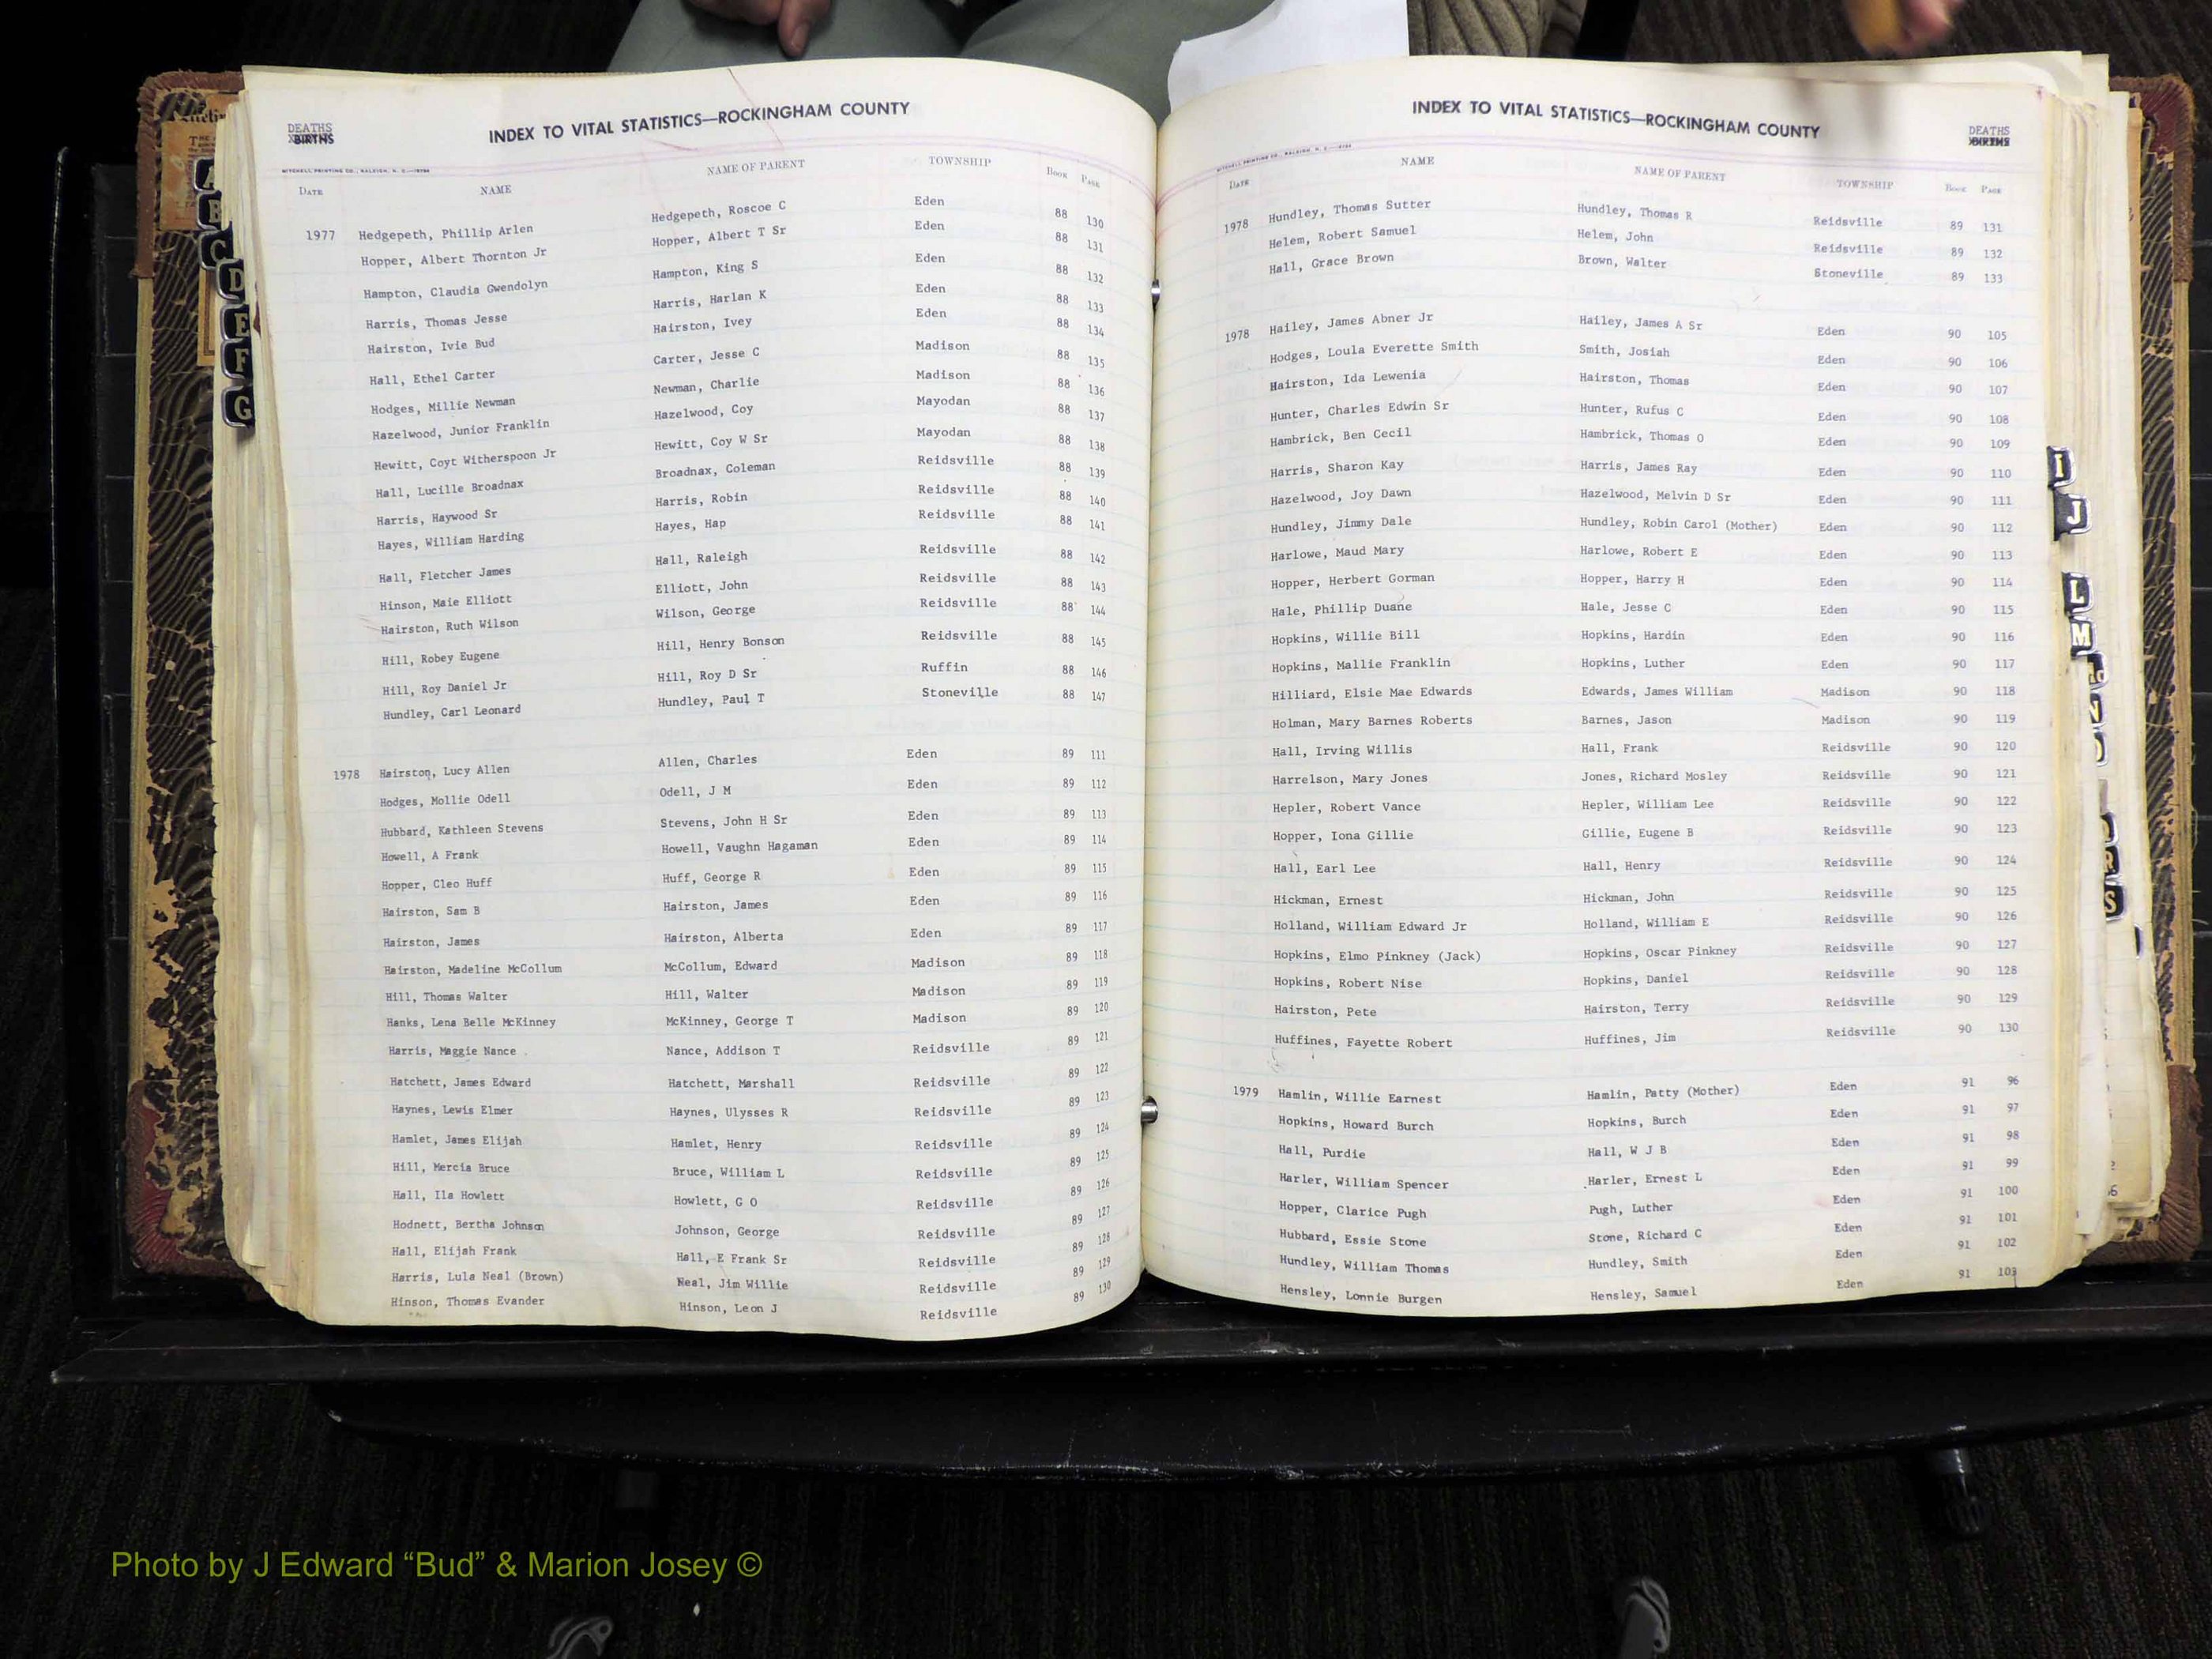 DEATHS
BIRTHS
INDEX TO VITAL STATISTICS—ROCKINGHAM COUNTY
MITCHELL PRINTING CO., RALEIGH, N. C.
DATE NAME NAME OF PARENT TOWNSHIP BOOK PAGE
1977 Hedgepeth, Phillip Arlen Hedgepeth, Roscoe C Eden 88 130
Hopper, Albert Thornton Jr Hopper, Albert T Sr Eden 88 131
Hampton, Claudia Gwendolyn Hampton, King S Eden 88 132
Harris, Thomas Jesse Harris, Harlan K Eden 88 133
Hairston, Ivie Bud Hairston, Ivey Eden 88 134
Hall, Ethel Carter Carter, Jesse C Madison 88 135
Hodges, Millie Newman Newman, Charlie Madison 88 136
Hazelwood, Junior Franklin Hazelwood, Coy Mayodan 88 137
Hewitt, Coyt Witherspoon Jr Hewitt, Coy W Sr Mayodan 88 138
Hall, Lucille Broadnax Broadnax, Coleman Reidsville 88 139
Harris, Haywood Sr Harris, Robin Reidsville 88 140
Hayes, William Harding Hayes, Hap Reidsville 88 141
Hall, Fletcher James Hall, Raleigh Reidsville 88 142
Hinson, Maie Elliott Elliott, John Reidsville 88 143
Hairston, Ruth Wilson Wilson, George Reidsville 88 144
Hill, Robey Eugene Hill, Henry Bonson Reidsville 88 145
Hill, Roy Daniel Jr Hill, Roy D Sr Ruffin 88 146
Hundley, Carl Leonard Hundley, Paul T Stoneville 88 147
1978 Hairston, Lucy Allen Allen, Charles Eden 89 111
Hodges, Mollie Odell Odell, J M Eden 89 112
Hubbard, Kathleen Stevens Stevens, John H Sr Eden 89 113
Howell, A Frank Howell, Vaughn Hagaman Eden 89 114
Hopper, Cleo Huff Huff, George R Eden 89 115
Hairston, Sam B Hairston, James Eden 89 116
Hairston, James Hairston, Alberta Eden 89 117
Hairston, Madeline McCollum McCollum, Edward Madison 89 118
Hill, Thomas Walter Hill, Walter Madison 89 119
Hanks, Lena Belle McKinney McKinney, George T Madison 89 120
Harris, Maggie Nance Nance, Addison T Reidsville 89 121
Hatchett, James Edward Hatchett, Marshall Reidsville 89 122
Haynes, Lewis Elmer Haynes, Ulysses R Reidsville 89 123
Hamlet, James Elijah Hamlet, Henry Reidsville 89 124
Hill, Mercia Bruce Bruce, William L Reidsville 89 125
Hall, Ila Howlett Howlett, G O Reidsville 89 126
Hodnett, Bertha Johnson Johnson, George Reidsville 89 127
Hall, Elijah Frank Hall, E Frank Sr Reidsville 89 128
Harris, Lula Neal (Brown) Neal, Jim Willie Reidsville 89 129
Hinson, Thomas Evander Hinson, Leon J Reidsville 89 130
A
B
C
D
E
F
G
INDEX TO VITAL STATISTICS—ROCKINGHAM COUNTY
DEATHS
BIRTHS
MITCHELL PRINTING CO., RALEIGH, N. C.
DATE NAME NAME OF PARENT TOWNSHIP BOOK PAGE
1978 Hundley, Thomas Sutter Hundley, Thomas R Reidsville 89 131
Helem, Robert Samuel Helem, John Reidsville 89 132
Hall, Grace Brown Brown, Walter Stoneville 89 133
1978 Hailey, James Abner Jr Hailey, James A Sr Eden 90 105
Hodges, Loula Everette Smith Smith, Josiah Eden 90 106
Hairston, Ida Lewenia Hairston, Thomas Eden 90 107
Hunter, Charles Edwin Sr Hunter, Rufus C Eden 90 108
Hambrick, Ben Cecil Hambrick, Thomas O Eden 90 109
Harris, Sharon Kay Harris, James Ray Eden 90 110
Hazelwood, Joy Dawn Hazelwood, Melvin D Sr Eden 90 111
Hundley, Jimmy Dale Hundley, Robin Carol (Mother) Eden 90 112
Harlowe, Maud Mary Harlowe, Robert E Eden 90 113
Hopper, Herbert Gorman Hopper, Harry H Eden 90 114
Hale, Phillip Duane Hale, Jesse C Eden 90 115
Hopkins, Willie Bill Hopkins, Hardin Eden 90 116
Hopkins, Mallie Franklin Hopkins, Luther Eden 90 117
Hilliard, Elsie Mae Edwards Edwards, James William Madison 90 118
Holman, Mary Barnes Roberts Barnes, Jason Madison 90 119
Hall, Irving Willis Hall, Frank Reidsville 90 120
Harrelson, Mary Jones Jones, Richard Mosley Reidsville 90 121
Hepler, Robert Vance Hepler, William Lee Reidsville 90 122
Hopper, Iona Gillie Gillie, Eugene B Reidsville 90 123
Hall, Earl Lee Hall, Henry Reidsville 90 124
Hickman, Ernest Hickman, John Reidsville 90 125
Holland, William Edward Jr Holland, William E Reidsville 90 126
Hopkins, Elmo Pinkney (Jack) Hopkins, Oscar Pinkney Reidsville 90 127
Hopkins, Robert Nise Hopkins, Daniel Reidsville 90 128
Hairston, Pete Hairston, Terry Reidsville 90 129
Huffines, Fayette Robert Huffines, Jim Reidsville 90 130
1979 Hamlin, Willie Earnest Hamlin, Patty (Mother) Eden 91 96
Hopkins, Howard Burch Hopkins, Burch Eden 91 97
Hall, Purdie Hall, W J B Eden 91 98
Harler, William Spencer Harler, Ernest L Eden 91 99
Hopper, Clarice Pugh Pugh, Luther Eden 91 100
Hubbard, Essie Stone Stone, Richard C Eden 91 101
Hundley, William Thomas Hundley, Smith Eden 91 102
Hensley, Lonnie Burgen Hensley, Samuel Eden 91 103
I
J
L
M
N
R
S
Photo by J Edward “Bud” & Marion Josey ©